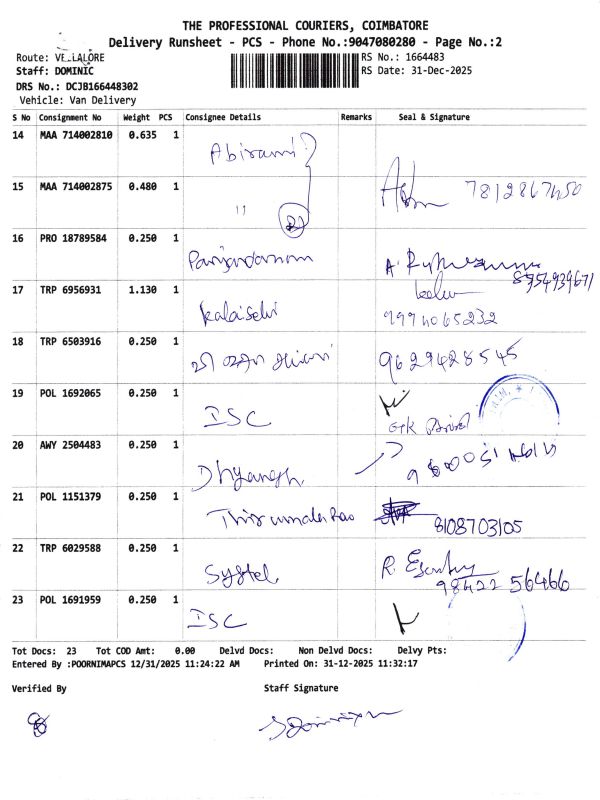 THE PROFESSIONAL COURIERS, COIMBATORE
Delivery Runsheet - PCS - Phone No.:9047080280 - Page No.:2
Route: VELLALORE
RS No.: 1664483
Staff: DOMINIC
RS Date: 31-Dec-2025
DRS No.: DCJB166448302
Vehicle: Van Delivery
S No Consignment No Weight PCS Consignee Details Remarks Seal & Signature
14 MAA 714002810 0.635 1 Abirami
15 MAA 714002875 0.480 1 "
16 PRO 18789584 0.250 1 8754939671
17 TRP 6956931 1.130 1 Kalaiselvi
18 TRP 6503916 0.250 1 9629428545
19 POL 1692065 0.250 1 ISC
20 AWY 2504483 0.250 1
21 POL 1151379 0.250 1 8108703105
22 TRP 6029588 0.250 1 Systel 98422 56466
23 POL 1691959 0.250 1 ISC
Tot Docs: 23 Tot COD Amt: 0.00 Delvd Docs: Non Delvd Docs: Delvy Pts:
Entered By :POORNIMAPCS 12/31/2025 11:24:22 AM Printed On: 31-12-2025 11:32:17
Verified By Staff Signature